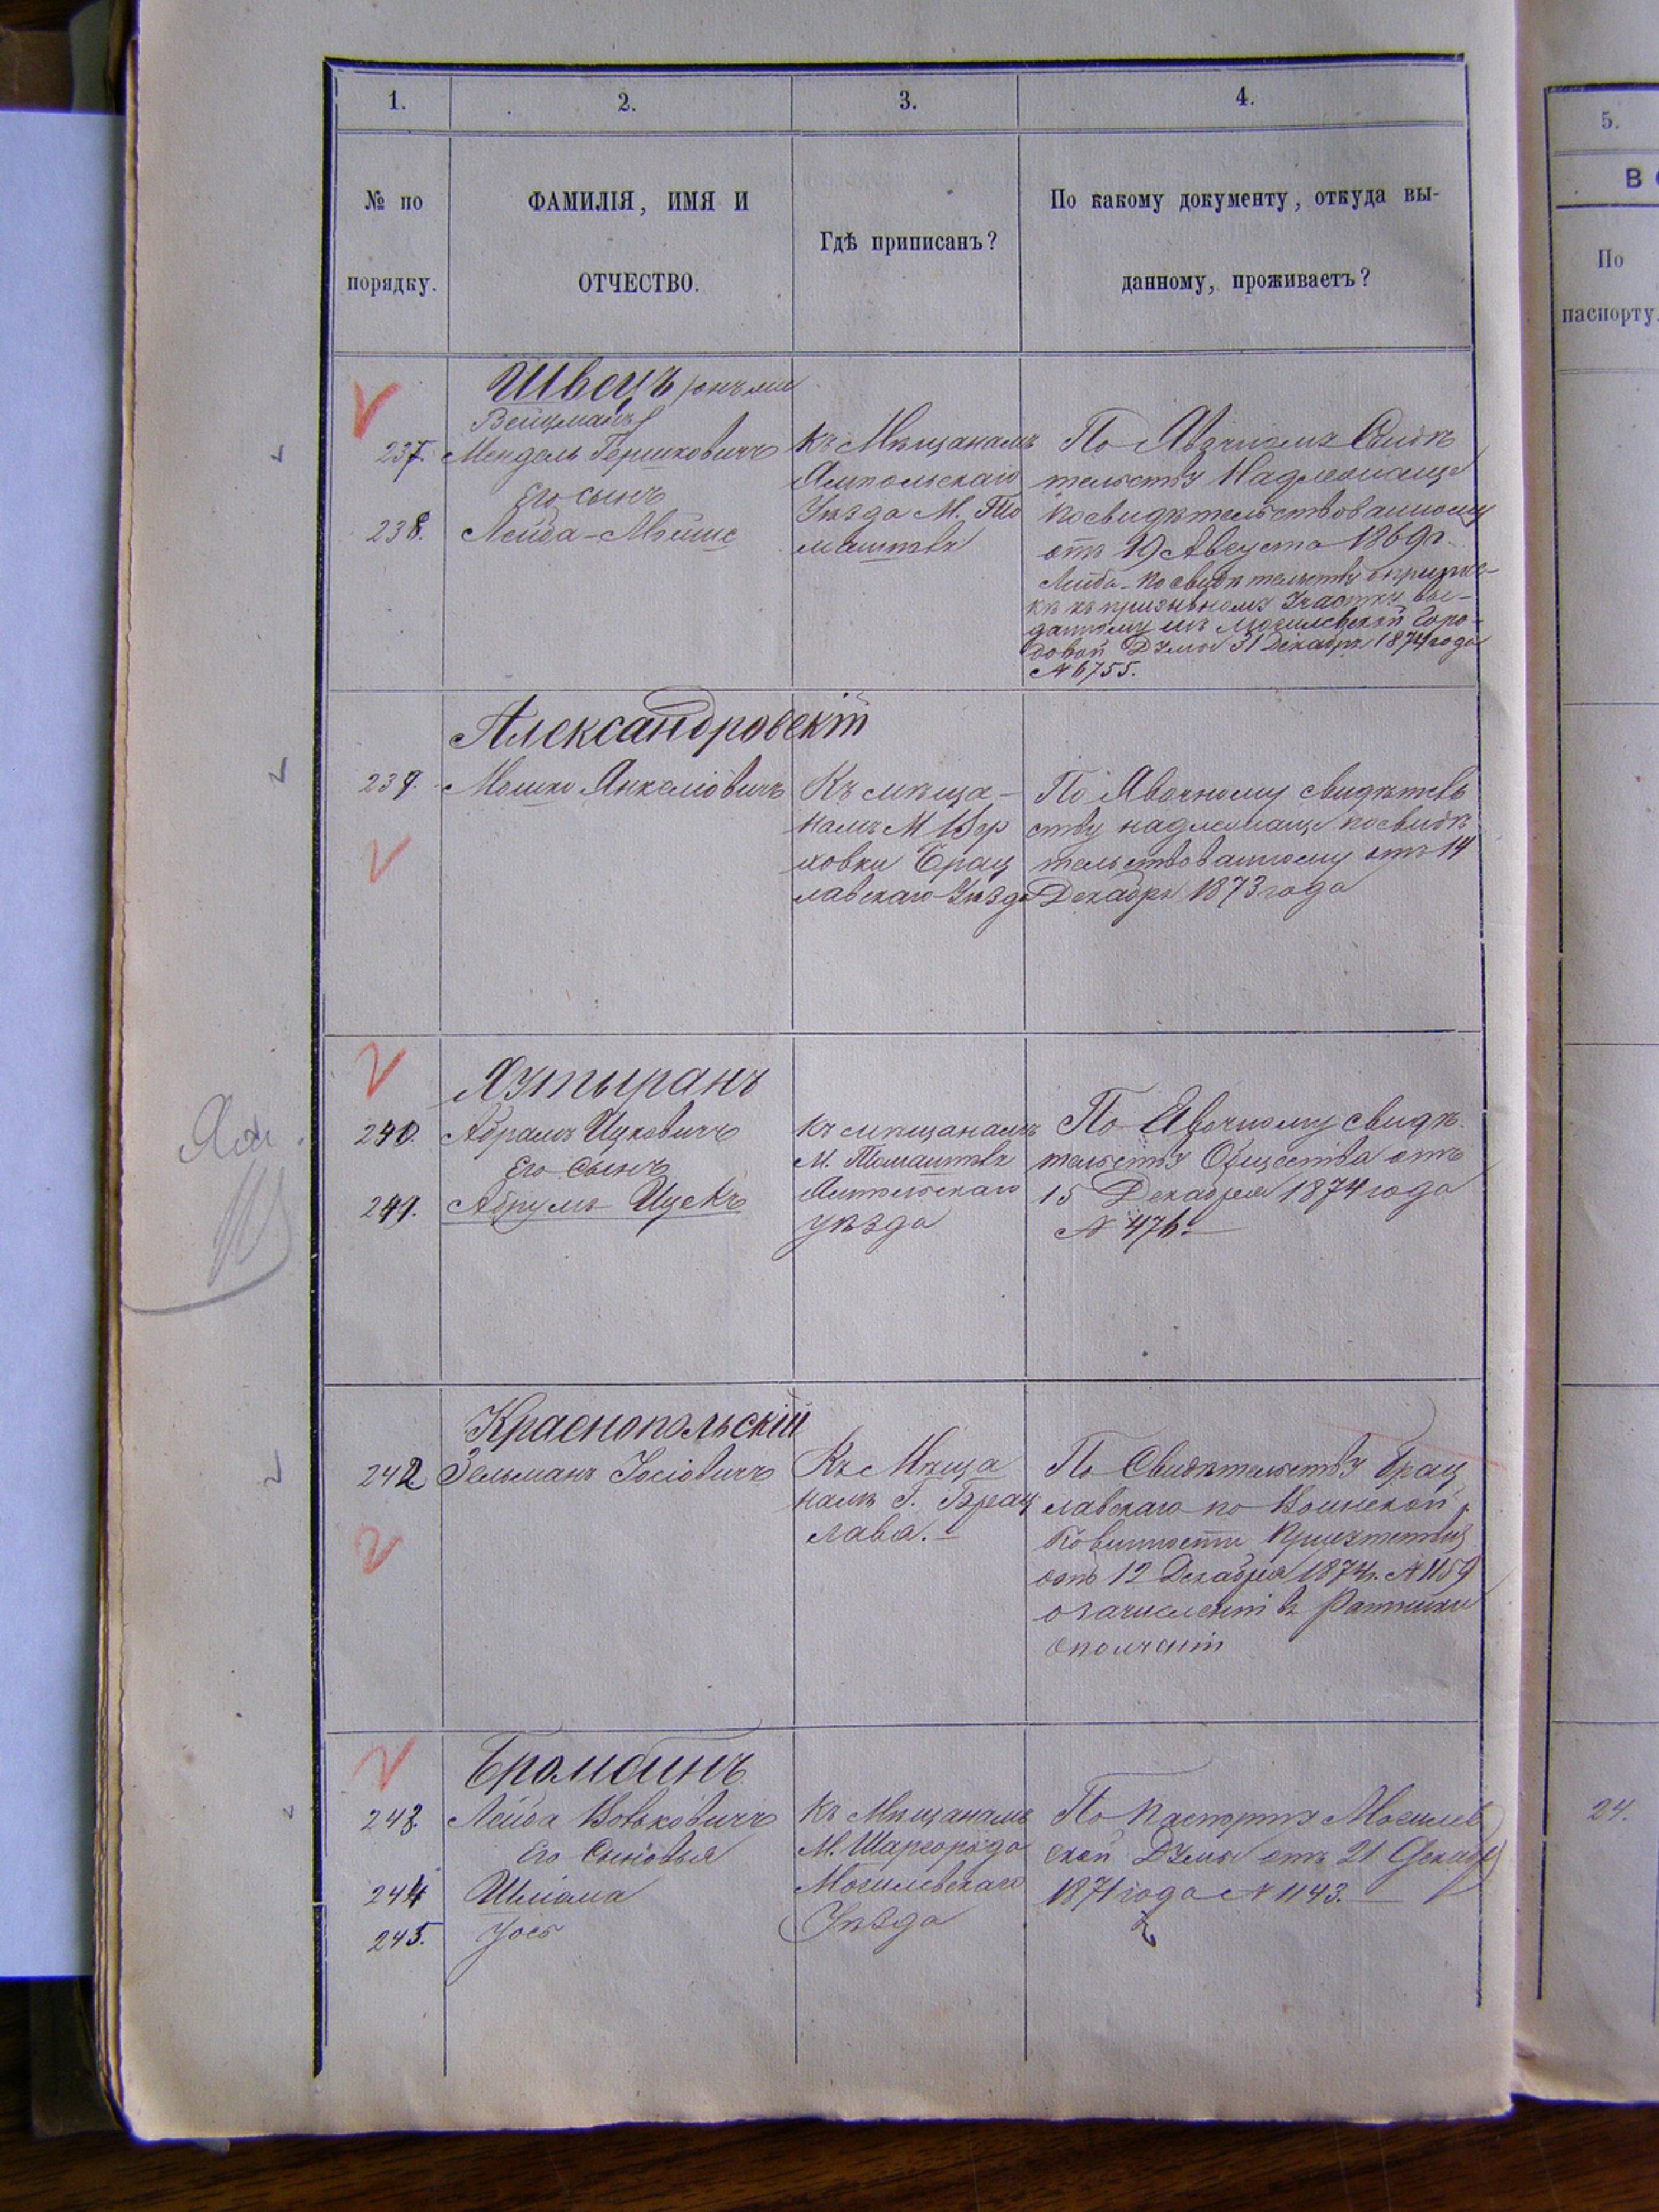 1. 2. 3. 4. 5.
№ по порядку.
ФАМИЛІЯ, ИМЯ И ОТЧЕСТВО.
Гдѣ приписанъ?
По какому документу, откуда вы-
данному, проживаетъ?
По
паспорту.
Швецъ
Вейцманъ
237. Мендель Гершковичъ
Его сынъ
238. Лейба-
Къ Мѣщанамъ
Ямпольскаго
Уѣзда М. То
машполь
По
тельству Надлежаще
посвидѣтельствованному
отъ 19 Августа 1869 г.
Лейба - по свидѣтельству о приписе-
кѣ къ призывному участку вы-
данному изъ Могилевской Горо-
довой Думы 31 Декабря 1874 года
№ 6755.
Александровскій
239. Мошко Янкеліовичъ
Къ мѣща-
намъ М Вер
ховки Брац
лавскаго Уѣзда
По Явочному свидѣтель
ству надлежаще посвидѣ
тельствованному отъ 14
Декабря 1873 года
240. Абрамъ Ицковичъ
Его Сынъ
241.
къ мѣщанамъ
М.
Ямпольскаго
уѣзда
По Явочному свидѣ
тельству Общества отъ
15 Декабря 1874 года
№ 476.
Краснопольскій
242 Зельманъ Іосіовичъ
Къ Мѣща
намъ Г. Брац
лава.
По Свидѣтельству Брац
лавскаго по Воинской
Повинности Присутствія
отъ 12 Декабря 1874 г. № 1159
о зачисленіи въ Ратники
ополченія
243. Лейба Вольковичъ
Его Сыновья
244 Шліома
245. Іось
Къ Мѣщанамъ
М. Шаргорода
Могилевскаго
Уѣзда
По Паспорту Могилев
ской Думы отъ 21 Декабр
1871 года № 1143.
24.